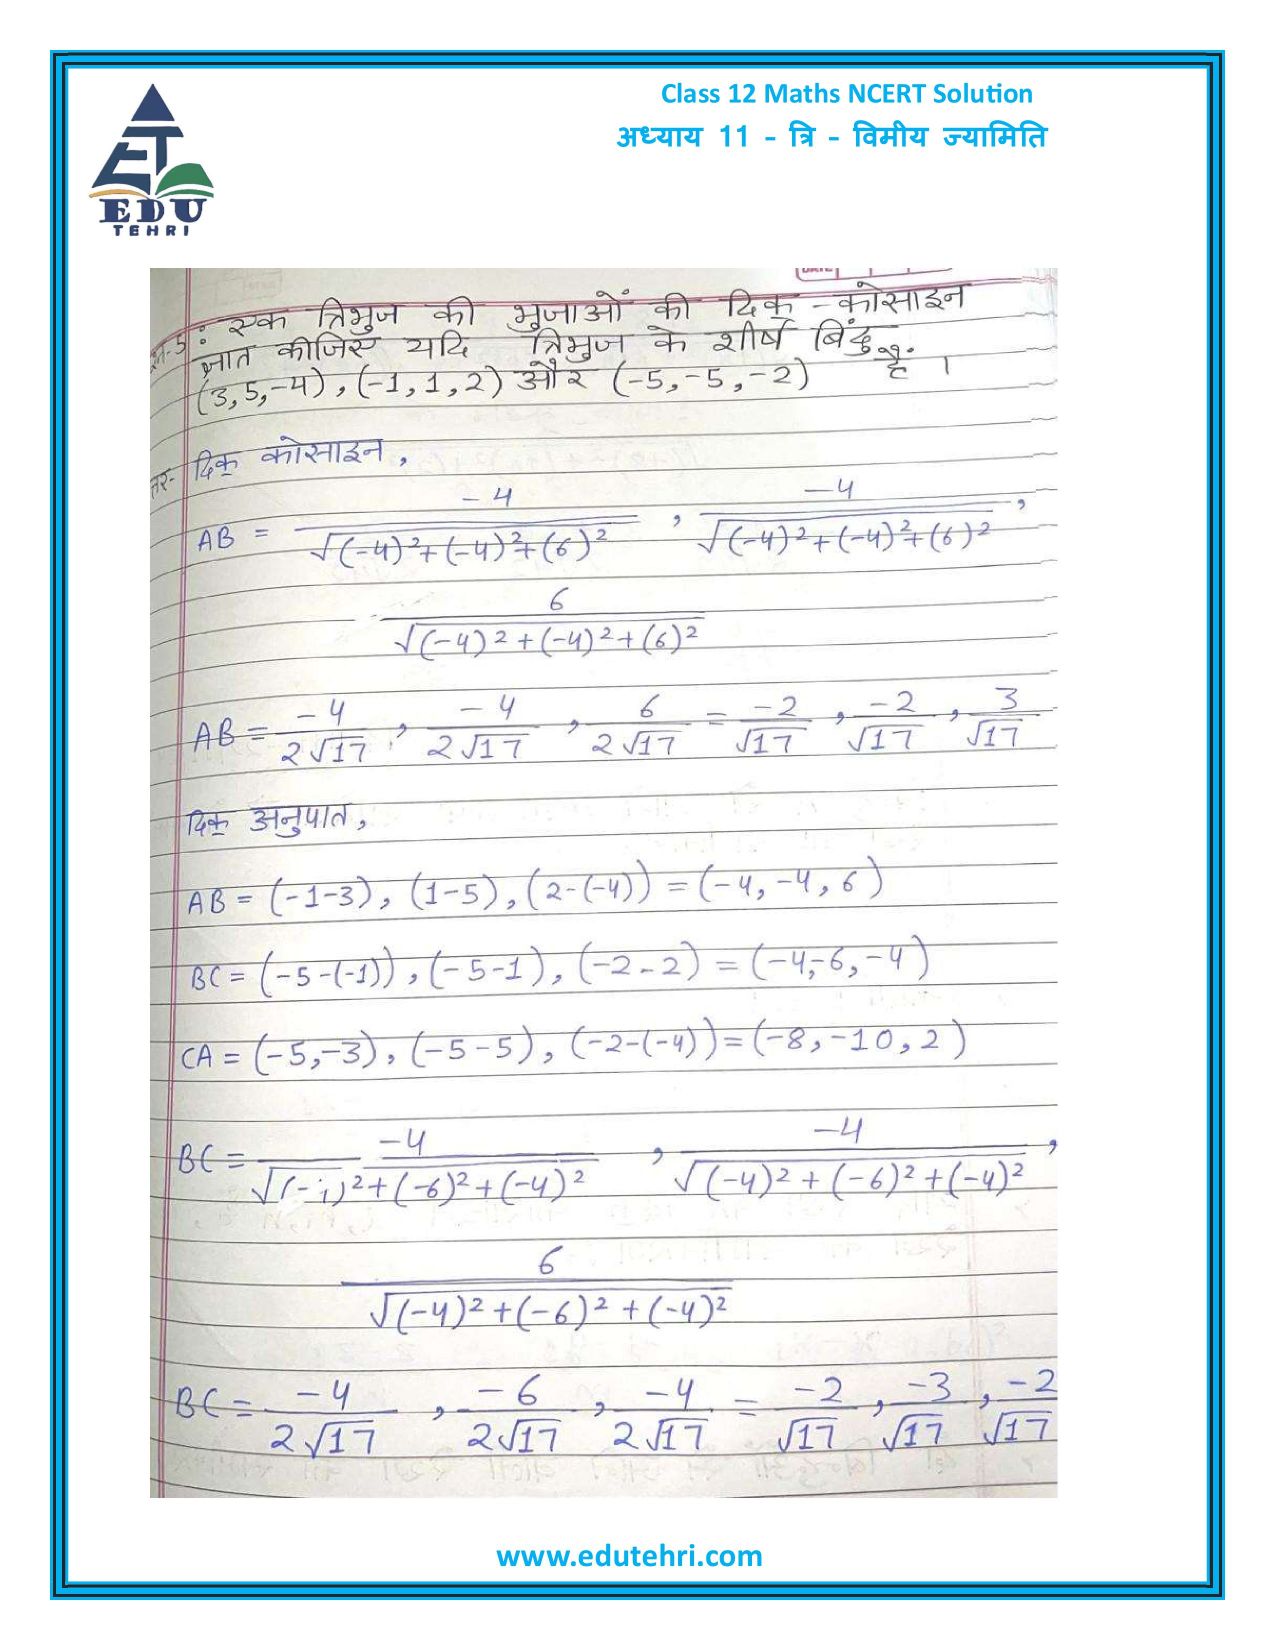 Class 12 Maths NCERT Solution
अध्याय 11 - त्रि - विमीय ज्यामिति
EDU
TEHRI
एक त्रिभुज की भुजाओं की दिक् - कोसाइन
ज्ञात कीजिए यदि त्रिभुज के शीर्ष बिंदु
(3,5,-4), (-1,1,2) और (-5,-5,-2) हैं ।
दिक् कोसाइन,
AB = -4/√((-4)²+(-4)²+(6)²) , -4/√((-4)²+(-4)²+(6)²) ,
6/√((-4)²+(-4)²+(6)²)
AB = -4/2√17 , -4/2√17 , 6/2√17 = -2/√17 , -2/√17 , 3/√17
दिक् अनुपात,
AB = (-1-3), (1-5), (2-(-4)) = (-4, -4, 6)
BC = (-5-(-1)), (-5-1), (-2-2) = (-4,-6,-4)
CA = (-5,-3), (-5-5), (-2-(-4)) = (-8,-10,2)
BC = -4/√((-4)²+(-6)²+(-4)²) , -4/√((-4)²+(-6)²+(-4)²) ,
6/√((-4)²+(-6)²+(-4)²)
BC = -4/2√17 , -6/2√17 , -4/2√17 = -2/√17 , -3/√17 , -2/√17
www.edutehri.com